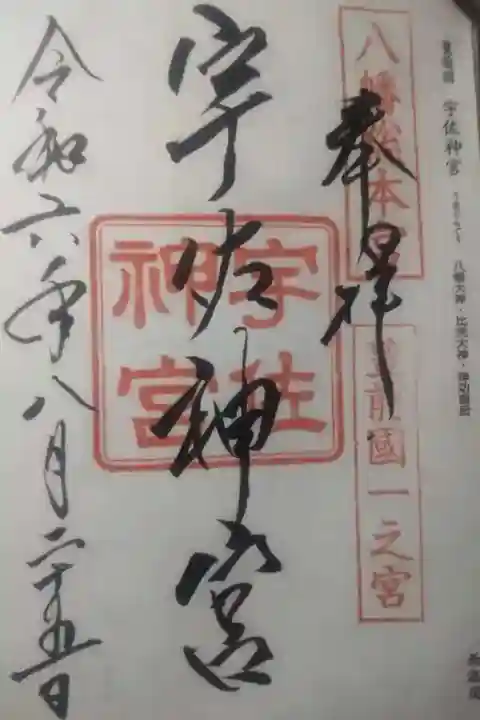 宇佐神宮 八幡大神・比売大神・神功皇后
八幡総本宮
豊前國一之宮
奉拝
宇佐神宮
宇佐神宮
令和六年八月二十五日